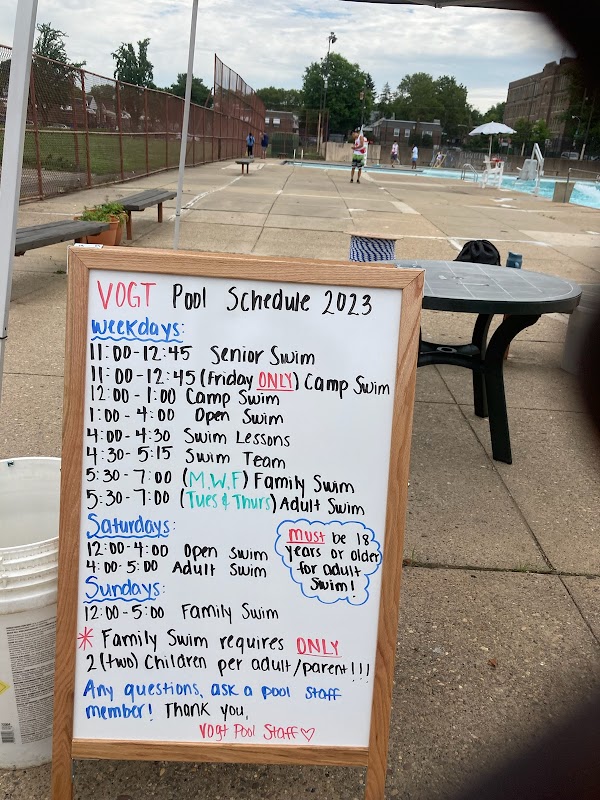 VOGT Pool Schedule 2023
Weekdays:
11:00-12:45 Senior Swim
11:00-12:45 (Friday ONLY) Camp Swim
12:00-1:00 Camp Swim
1:00-4:00 Open Swim
4:00-4:30 Swim Lessons
4:30-5:15 Swim Team
5:30-7:00 (M,W,F) Family Swim
5:30-7:00 (Tues & Thurs) Adult Swim
Saturdays:
12:00-4:00 Open Swim
4:00-5:00 Adult Swim
MUST be 18
years or older
for adult
Swim!
Sundays:
12:00-5:00 Family Swim
* Family Swim requires ONLY
2 (two) Children per adult/parent!!!
Any questions, ask a pool staff
member! Thank you,
Vogt Pool Staff ♡